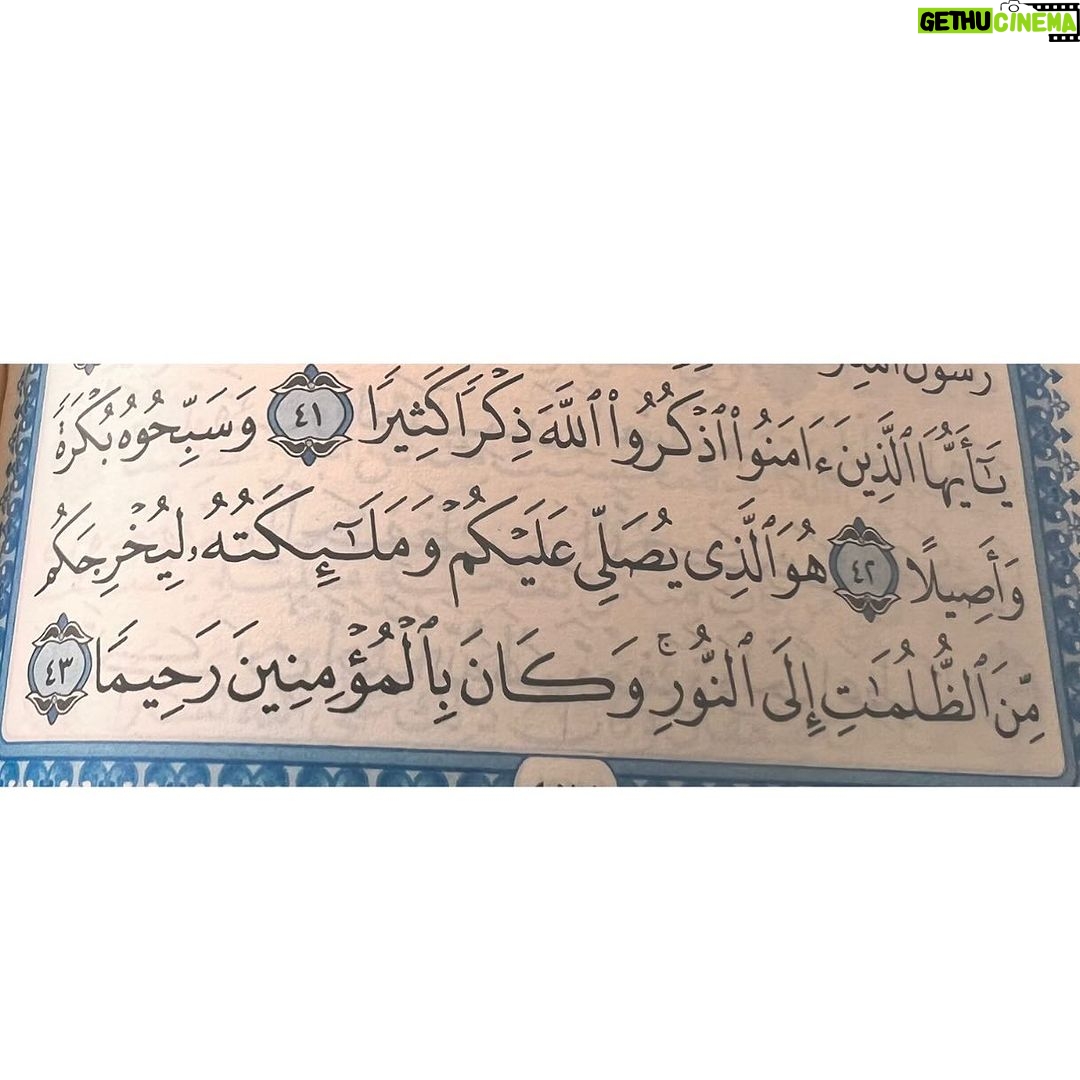 GETHUCINEMA
يَـٰٓأَيُّهَا ٱلَّذِينَ ءَامَنُوا۟ ٱذْكُرُوا۟ ٱللَّهَ ذِكْرًا كَثِيرًا ٤١ وَسَبِّحُوهُ بُكْرَةً
وَأَصِيلًا ٤٢ هُوَ ٱلَّذِى يُصَلِّى عَلَيْكُمْ وَمَلَـٰٓئِكَتُهُۥ لِيُخْرِجَكُم
مِّنَ ٱلظُّلُمَـٰتِ إِلَى ٱلنُّورِ ۚ وَكَانَ بِٱلْمُؤْمِنِينَ رَحِيمًا ٤٣